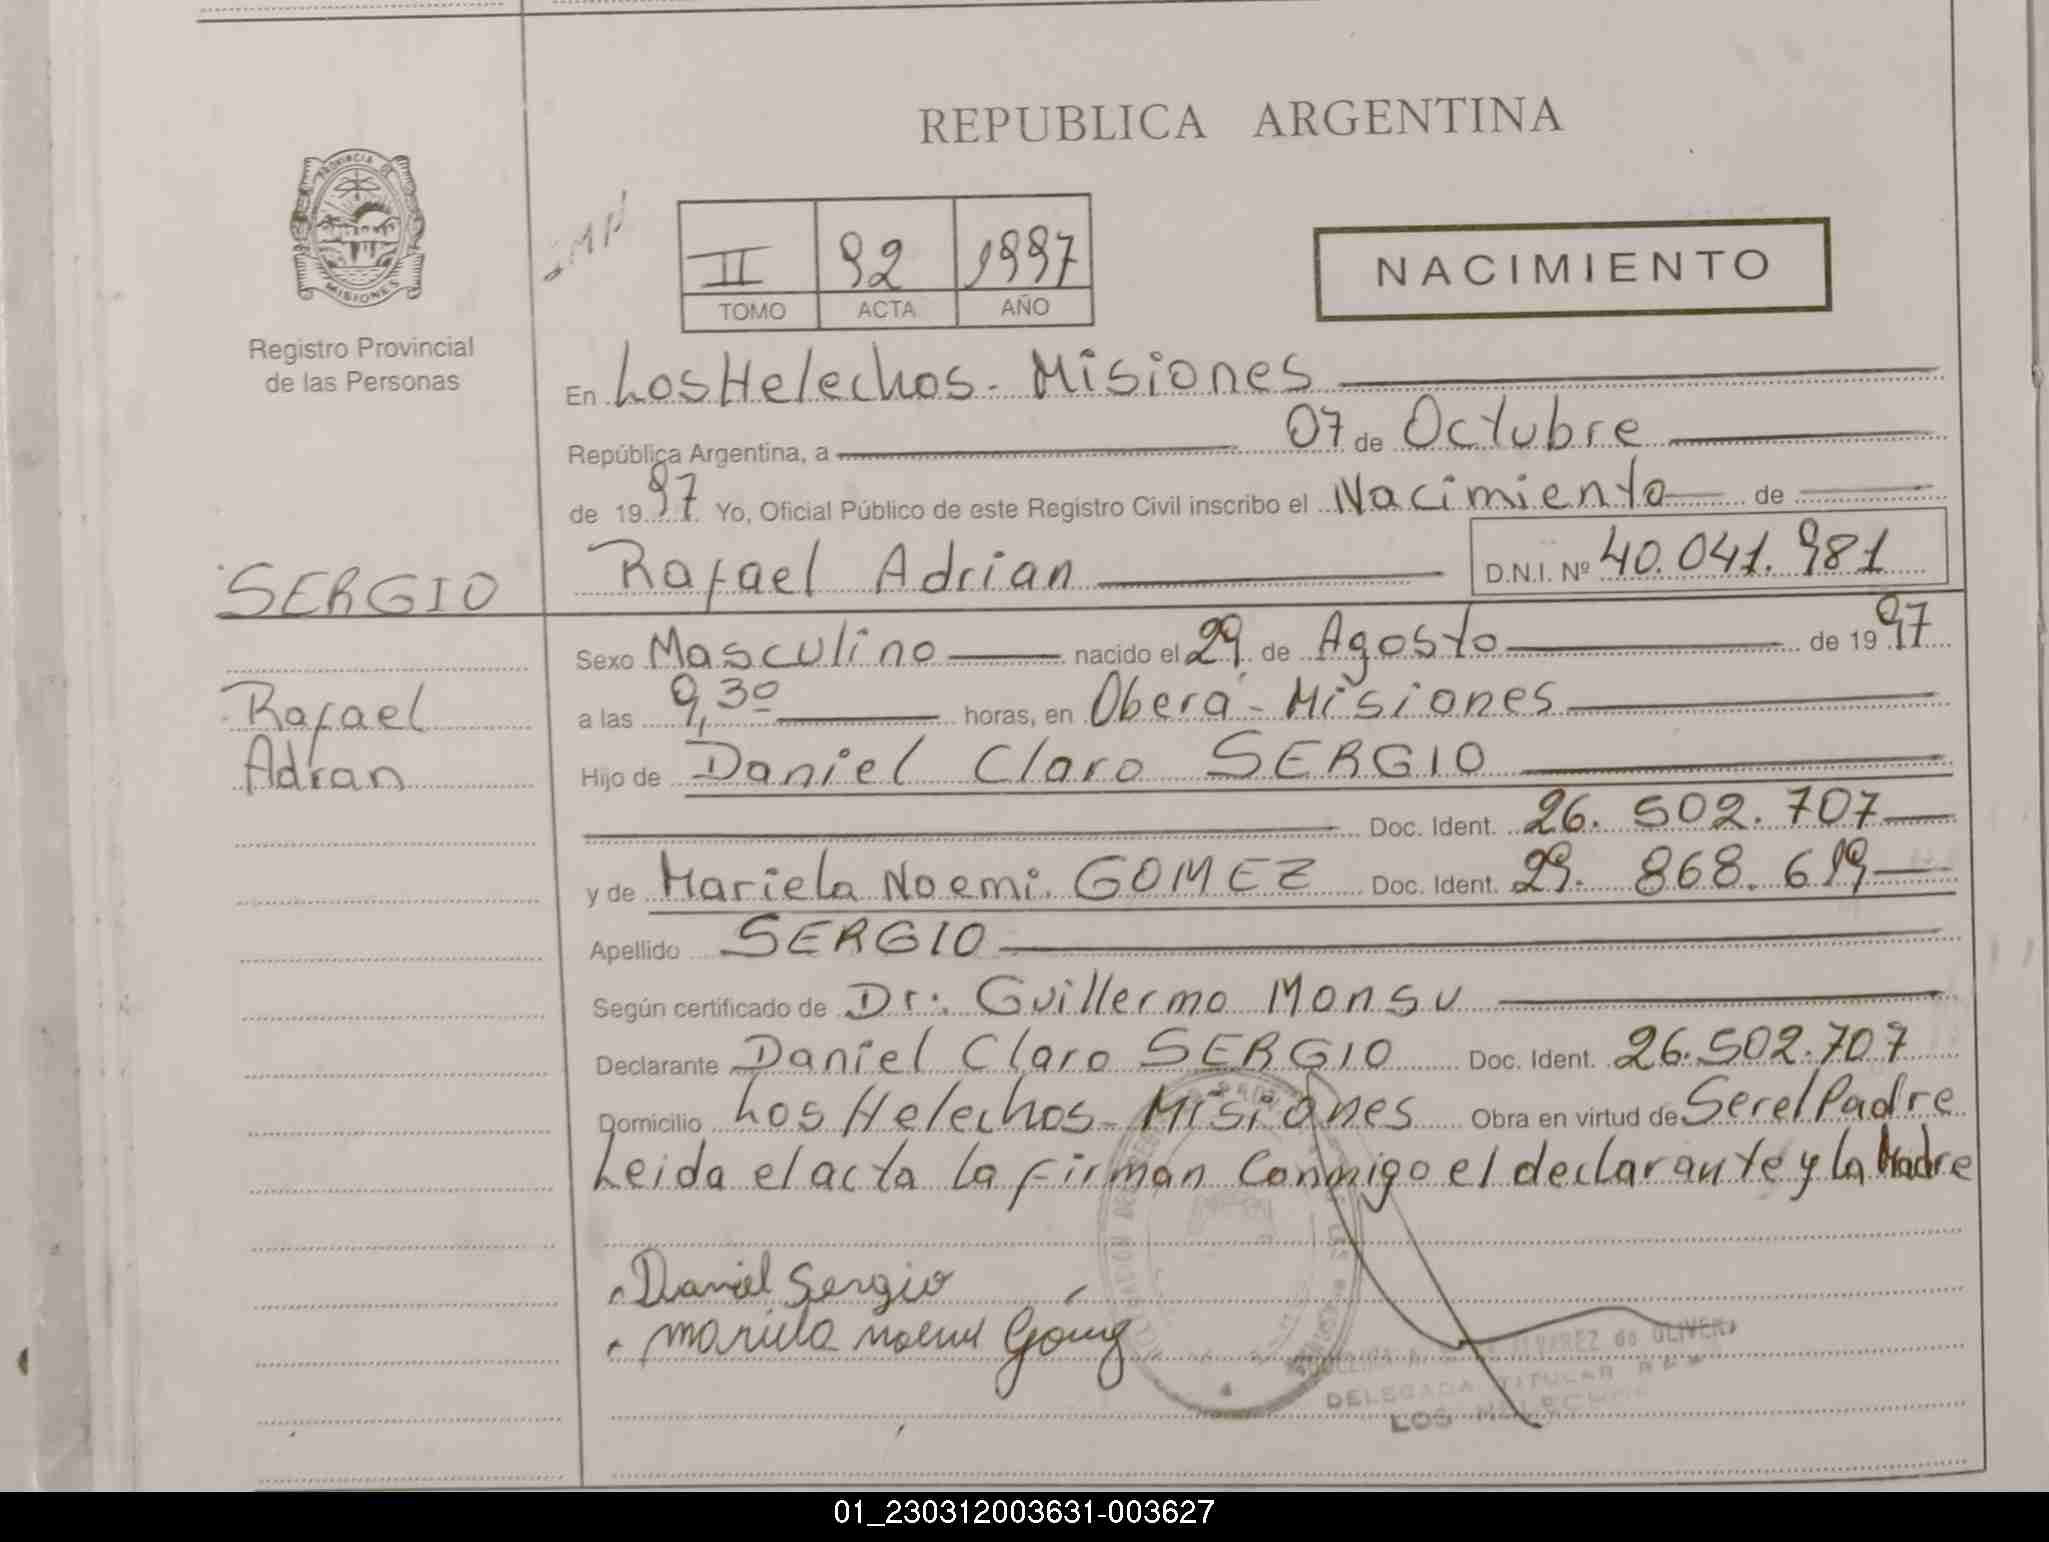 REPUBLICA ARGENTINA
PROVINCIA DE
MISIONES
Registro Provincial
de las Personas
II 92 1997
TOMO ACTA AÑO
NACIMIENTO
En Los Helechos - Misiones
República Argentina, a 07 de Octubre
de 1997 Yo, Oficial Público de este Registro Civil inscribo el Nacimiento de
SERGIO
Rafael
Adran
Rafael Adrian D.N.I. Nº 40.041.981
Sexo Masculino nacido el 29 de Agosto de 1997
a las 9,30 horas, en Oberá - Misiones
Hijo de Daniel Claro SERGIO
Doc. Ident. 26.502.707
y de Mariela Noemi GOMEZ Doc. Ident. 29.868.619
Apellido SERGIO
Según certificado de Dr: Guillermo Monsu
Declarante Daniel Claro SERGIO Doc. Ident. 26.502.707
Domicilio Los Helechos - Misiones Obra en virtud de Ser el Padre
Leida el acta la firman Conmigo el declarante y la Madre
Daniel Sergio
Mariela Noemi Gomez
ALVAREZ de OLIVERA
DELEGADA TITULAR
LOS HELECHOS
01_230312003631-003627